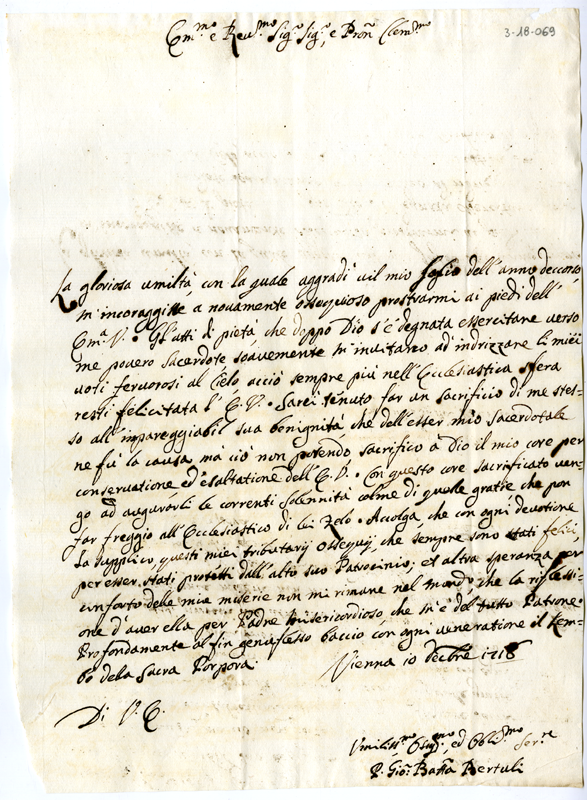 Em.mo e Rev.mo Sig.r Sig.r, e Pron Clem.mo
3-18-069
La gloriosa umiltà, con la quale aggradi uil mio foglio dell'anno decorso
m'incoraggisse, à nouamente ossequioso prostrarmi ai piedi dell'
Em.a V. Gl'atti di pietà che doppo Dio s'è degnata essercitare verso
me pouero sacerdote soavemente m'inuitarco ad'indrizzare li miei
uoti feruorosi al Cielo acciò sempre più nell'Ecclesiastica sfera
resti felicitata l'E.V. Sarei tenuto far un sacrificio di me stes-
so all'impareggiabil sua benignità, che dell'esser mio sacerdotale
ne fù la causa, ma ciò non potendo, sacrifico a Dio il mio core per
conseruatione ed'esaltatione dell'E.V. Con questo core sacrificato uen-
go ad augurarli le correnti solennità colme di quelle gratie che pon
far freggio all'Ecclesiastico di lei zelo. Accolga, che con ogni deuotione
la supplico, questi miei tributarij ossequij, che sempre sono stati felici,
per esser stati protetti dall'alto suo Patrocinio; et altra speranza per
conforto delle mie miserie non mi rimane nel mondo, che la riflessi-
one d'auer ella per Padre misericordioso che m'è del tutto Patrone.
Profondamente al fin genuflesso baccio con ogni ueneratione il Lem-
bo dela Sacra Porpora. Vienna 10 Decbre 1718
Di V.E.
Umiliss.mo Osseq.mo, ed Obli.mo Ser.re
P. Gio: Batta Bertuli